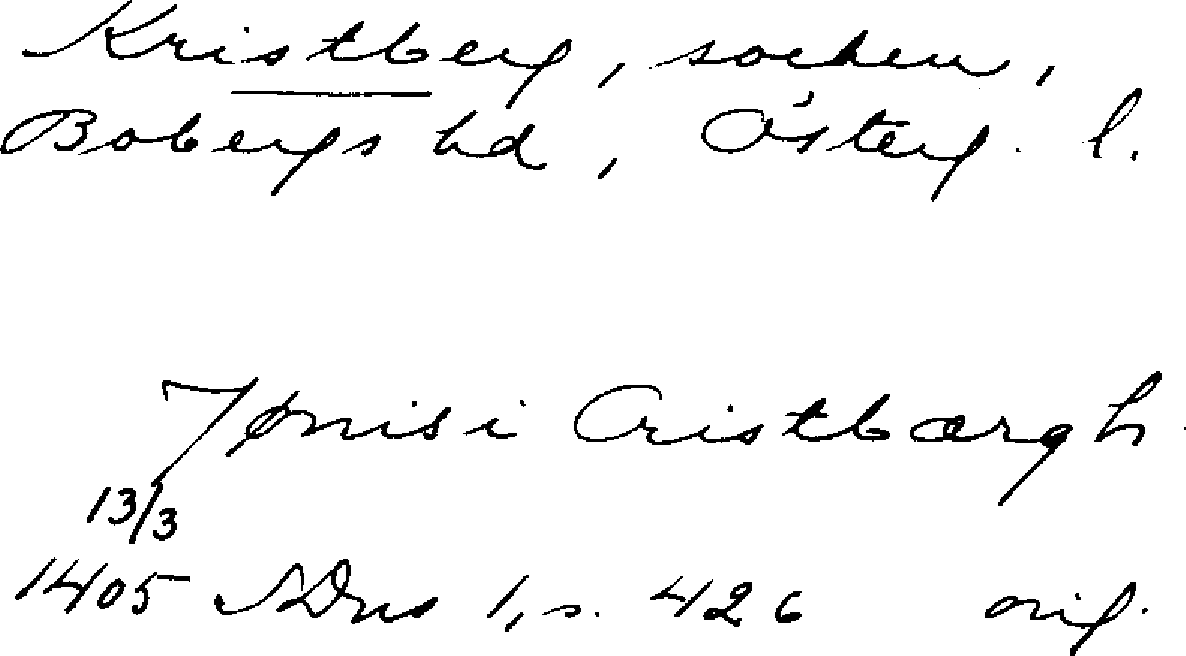 Kristberg, socken,
Bobergs hd, Österg. l.
Tønis i Cristbærgh.
13/3
1405 SDns 1, s. 426 orig.